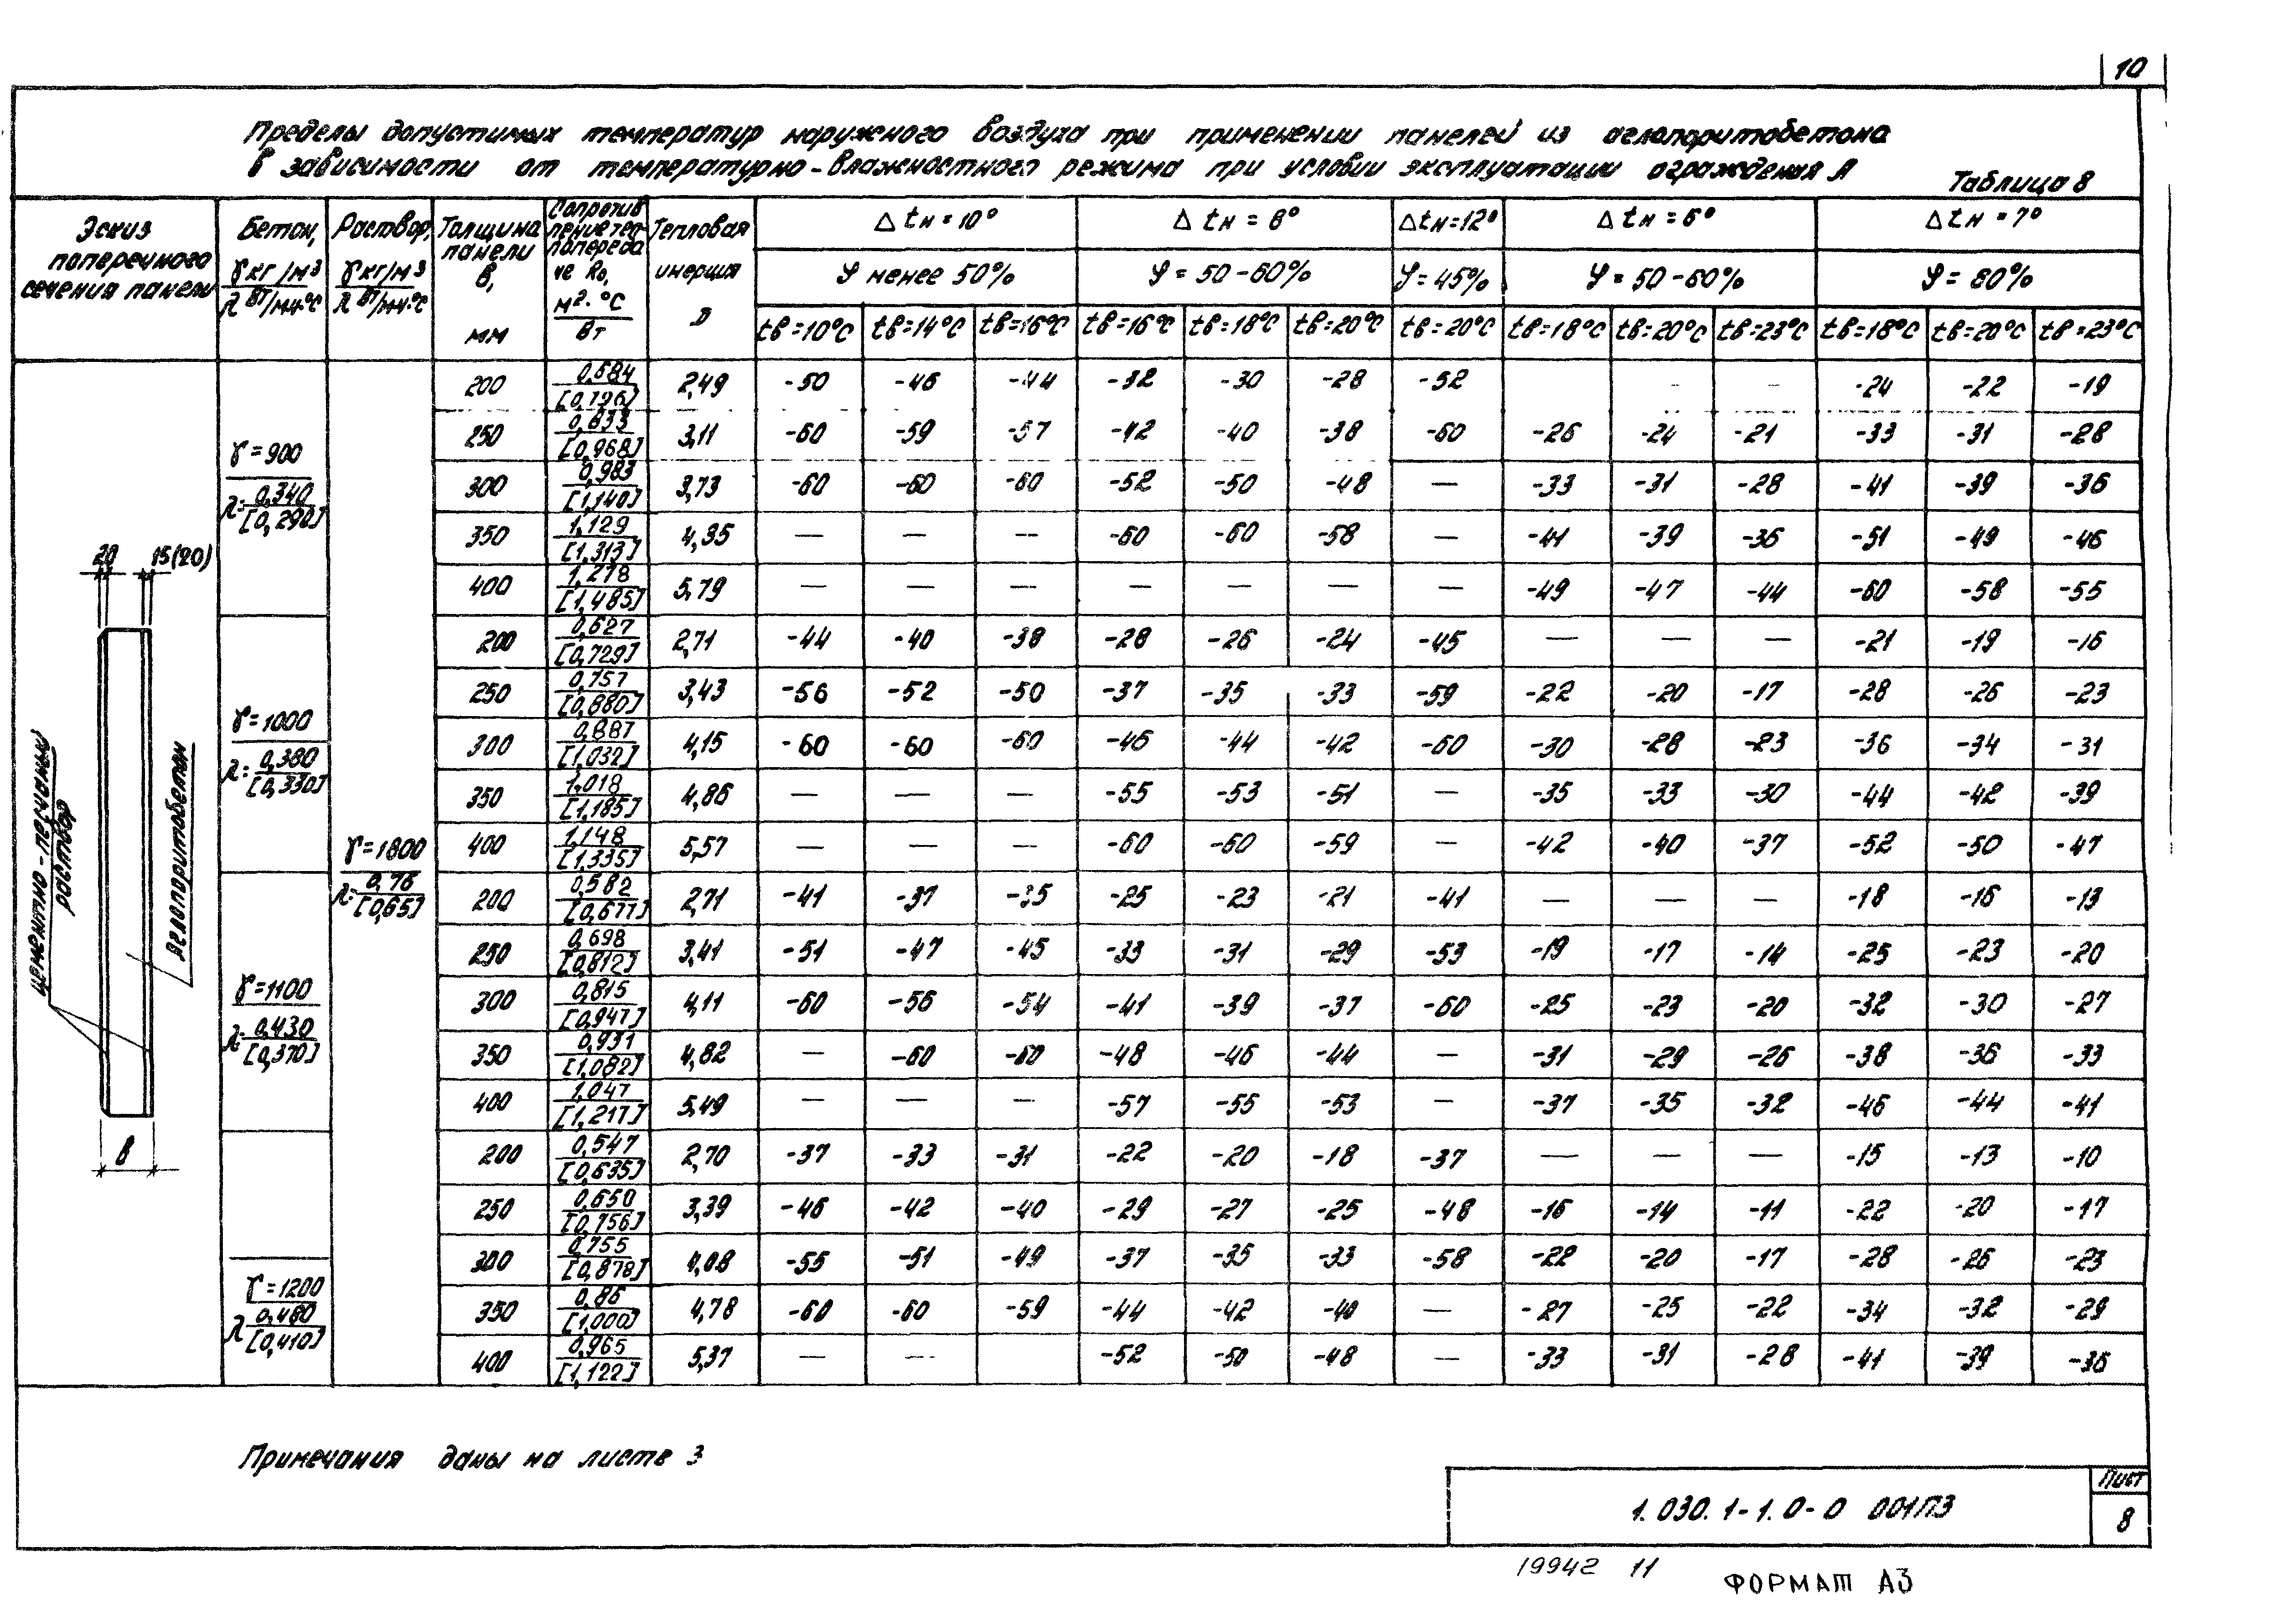 10
Пределы допустимых температур наружного воздуха при применении панелей из аглопоритобетона
в зависимости от температурно-влажностного режима при условии эксплуатации ограждения А
Таблица 8
Эскиз поперечного сечения панели | Бетон, γ кг/м³ / λ Вт/м·°С | Раствор, γ кг/м³ / λ Вт/м·°С | Толщина панели В, мм | Сопротивление теплопередаче R₀, м²·°С / Вт | Тепловая инерция D | Δtн=10° | Δtн=8° | Δtн=12° | Δtн=6° | Δtн=7°
φ менее 50% | φ=50-60% | φ=45% | φ=50-60% | φ=60%
tв=10°С | tв=14°С | tв=16°С | tв=16°С | tв=18°С | tв=20°С | tв=20°С | tв=18°С | tв=20°С | tв=23°С | tв=18°С | tв=20°С | tв=23°С
20 15(20)
цементно-песчаный раствор
Аглопоритобетон
В
γ=1800
λ=0,76 / [0,65]
γ=900
λ=0,340 / [0,290]
200 | 0,684 / [0,796] | 2,49 | -50 | -46 | -44 | -32 | -30 | -28 | -52 | | - | - | -24 | -22 | -19
250 | 0,833 / [0,968] | 3,11 | -60 | -59 | -57 | -42 | -40 | -38 | -60 | -26 | -24 | -21 | -33 | -31 | -28
300 | 0,983 / [1,140] | 3,73 | -60 | -60 | -60 | -52 | -50 | -48 | — | -33 | -31 | -28 | -41 | -39 | -36
350 | 1,129 / [1,313] | 4,35 | — | — | — | -60 | -60 | -58 | — | -41 | -39 | -36 | -51 | -49 | -46
400 | 1,278 / [1,485] | 5,79 | — | — | — | — | — | — | — | -49 | -47 | -44 | -60 | -58 | -55
γ=1000
λ=0,380 / [0,330]
200 | 0,627 / [0,729] | 2,71 | -44 | -40 | -38 | -28 | -26 | -24 | -45 | — | — | — | -21 | -19 | -16
250 | 0,757 / [0,880] | 3,43 | -56 | -52 | -50 | -37 | -35 | -33 | -59 | -22 | -20 | -17 | -28 | -26 | -23
300 | 0,887 / [1,032] | 4,15 | -60 | -60 | -60 | -46 | -44 | -42 | -60 | -30 | -28 | -23 | -36 | -34 | -31
350 | 1,018 / [1,185] | 4,86 | — | — | — | -55 | -53 | -51 | — | -35 | -33 | -30 | -44 | -42 | -39
400 | 1,148 / [1,335] | 5,57 | — | — | — | -60 | -60 | -59 | — | -42 | -40 | -37 | -52 | -50 | -47
γ=1100
λ=0,430 / [0,370]
200 | 0,582 / [0,677] | 2,71 | -41 | -37 | -35 | -25 | -23 | -21 | -41 | — | — | — | -18 | -16 | -13
250 | 0,698 / [0,812] | 3,41 | -51 | -47 | -45 | -33 | -31 | -29 | -53 | -19 | -17 | -14 | -25 | -23 | -20
300 | 0,815 / [0,947] | 4,11 | -60 | -56 | -54 | -41 | -39 | -37 | -60 | -25 | -23 | -20 | -32 | -30 | -27
350 | 0,931 / [1,082] | 4,82 | — | -60 | -60 | -48 | -46 | -44 | — | -31 | -29 | -26 | -38 | -36 | -33
400 | 1,047 / [1,217] | 5,49 | — | — | — | -57 | -55 | -53 | — | -37 | -35 | -32 | -46 | -44 | -41
γ=1200
λ 0,480 / [0,410]
200 | 0,547 / [0,635] | 2,70 | -37 | -33 | -31 | -22 | -20 | -18 | -37 | — | — | — | -15 | -13 | -10
250 | 0,650 / [0,756] | 3,39 | -46 | -42 | -40 | -29 | -27 | -25 | -48 | -16 | -14 | -11 | -22 | -20 | -17
300 | 0,755 / [0,878] | 4,08 | -55 | -51 | -49 | -37 | -35 | -33 | -58 | -22 | -20 | -17 | -28 | -26 | -23
350 | 0,86 / [1,000] | 4,78 | -60 | -60 | -59 | -44 | -42 | -40 | — | -27 | -25 | -22 | -34 | -32 | -29
400 | 0,965 / [1,122] | 5,37 | — | — | | -52 | -50 | -48 | — | -33 | -31 | -28 | -41 | -39 | -36
Примечания даны на листе 3
1.030.1-1.0-0 001ПЗ
Лист
8
19942 11
ФОРМАТ А3